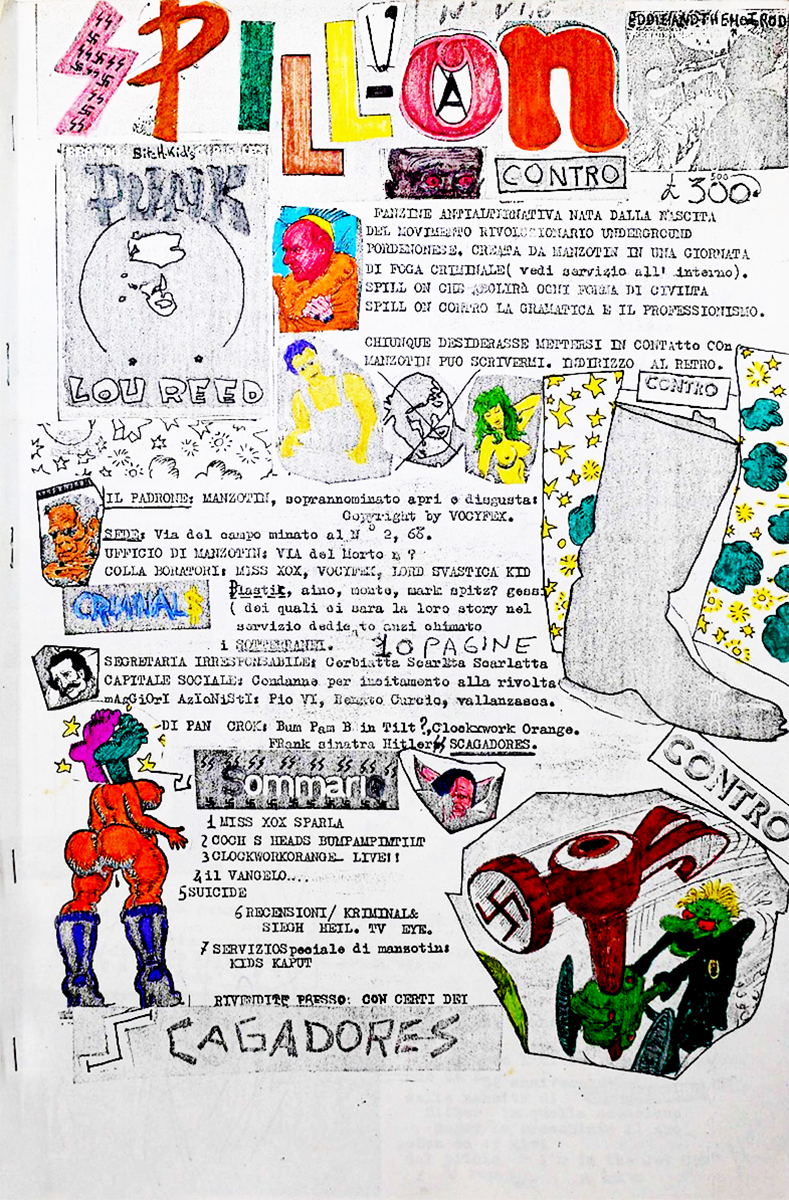 SPILL-OAn
EDDIE AND THE HOT ROD
CONTRO
£ 300.
500
Bitch Kid's
PUNK
LOU REED
FANZINE ANTIALTERNATIVA NATA DALLA NASCITA
DEL MOVIMENTO RIVOLUZIONARIO UNDERGROUND
PORDENONESE. CREATA DA MANZOTIN IN UNA GIORNATA
DI FOGA CRIMINALE( vedi servizio all' interno).
SPILL ON CHE ABOLIRÀ OGNI FORMA DI CIVILTA
SPILL ON CONTRO LA GRAMATICA E IL PROFESSIONISMO.
CHIUNQUE DESIDERASSE METTERSI IN CONTAtto COn
MANZOTIN PUO SCRIVERMI. INDIRIZZO AL RETRO.
CONTRO
IL PADRONE: MANZOTIN, soprannominato apri e disgusta:
Copyright by VOCYFEX.
SEDE: Via del campo minato al N° 2, 68.
UFFICIO DI MANZOTIN: VIA del Morto n ?
COLLA BORATORI: MISS XOX, VOCYFEX, LORD SVASTICA KID
Plastik, aino, monte, mark spitz? gess
( dei quali ci sara la loro story nel
servizio dedicato anzi chimato
i SOTTERRANEI. 10 PAGINE
CRIMINAL$
SEGRETARIA IRRESPONSABILE: Cerbiatta Scarlta Scarlatta
CAPITALE SOCIALE: Condanne per incitamento alla rivolta
mAgGiOrI AzIoNiStI: Pio VI, Renato Curcio, vallanzasca.
DI PAN CROK: Bum Pam B in Tilt?, Clockxwork Orange.
FRank sinatra Hitler SCAGADORES.
Sommario
1 MISS XOX SPARLA
2 COCH S HEADS BUMPAMPIMTILT
3 CLOCKWORKORANGE_ LIVE!!
4 il VANGELO....
5 SUICIDE
6 RECENSIONI/ KRIMINAL&
SIEGH HEIL. TV EYE.
7 SERVIZIOSpeciale di manzotin:
KIDS KAPUT
CONTRO
RIVENDITE PRESSO: CON CERTI DEI
SCAGADORES